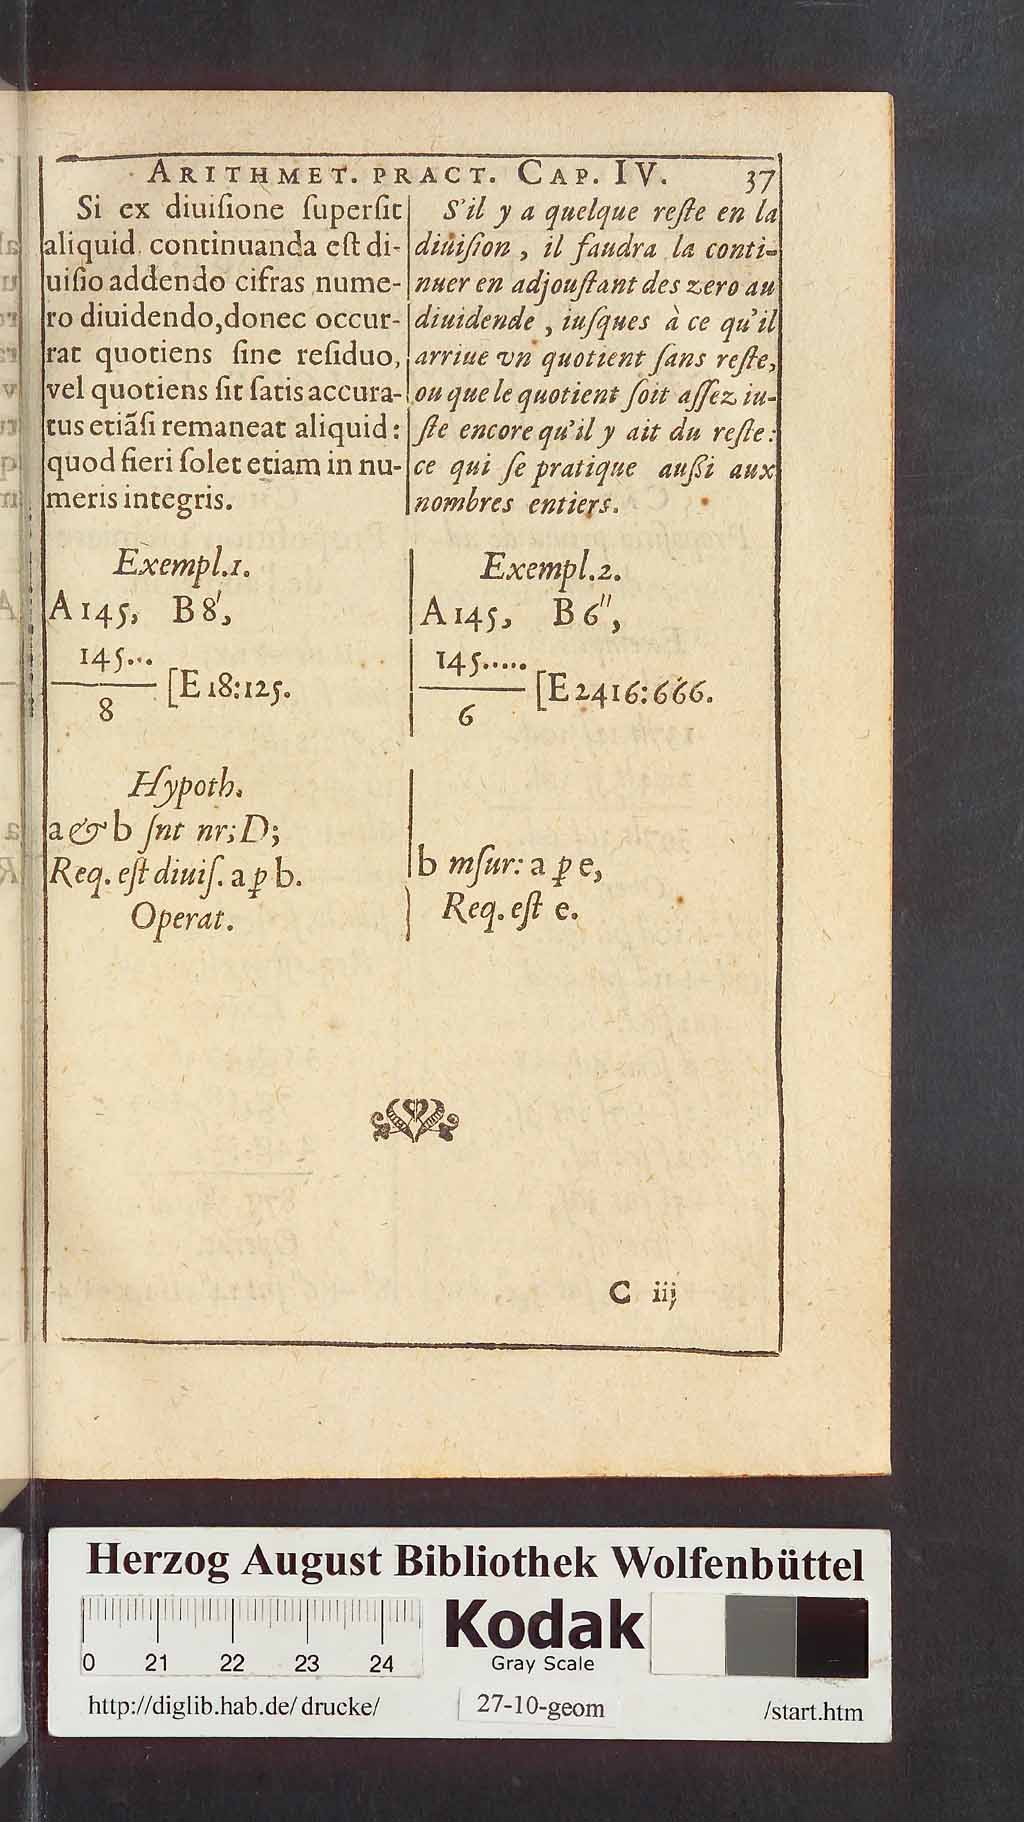 ARITHMET. PRACT. CAP. IV. 37
Si ex diuiſione ſuperſit
aliquid continuanda eſt di-
uiſio addendo cifras nume-
ro diuidendo, donec occur-
rat quotiens ſine reſiduo,
vel quotiens ſit ſatis accura-
tus etiãſi remaneat aliquid:
quod fieri ſolet etiam in nu-
meris integris.
S'il y a quelque reſte en la
diuiſion, il faudra la conti-
nuer en adjouſtant des zero au
diuidende, iuſques à ce qu'il
arriue vn quotient ſans reſte,
ou que le quotient ſoit aſſez iu-
ſte encore qu'il y ait du reſte:
ce qui ſe pratique außi aux
nombres entiers.
Exempl.1.
A 145, B 8',
145...
8
[E 18:125.
Exempl.2.
A 145, B 6'',
145.....
6
[E 2416:666.
Hypoth.
a & b ſnt nr; D;
Req. eſt diuiſ. a ꝑ b.
Operat.
b mſur: a ꝑ e,
Req. eſt e.
C iij
Herzog August Bibliothek Wolfenbüttel
0 21 22 23 24
Kodak
Gray Scale
http://diglib.hab.de/drucke/ 27-10-geom /start.htm